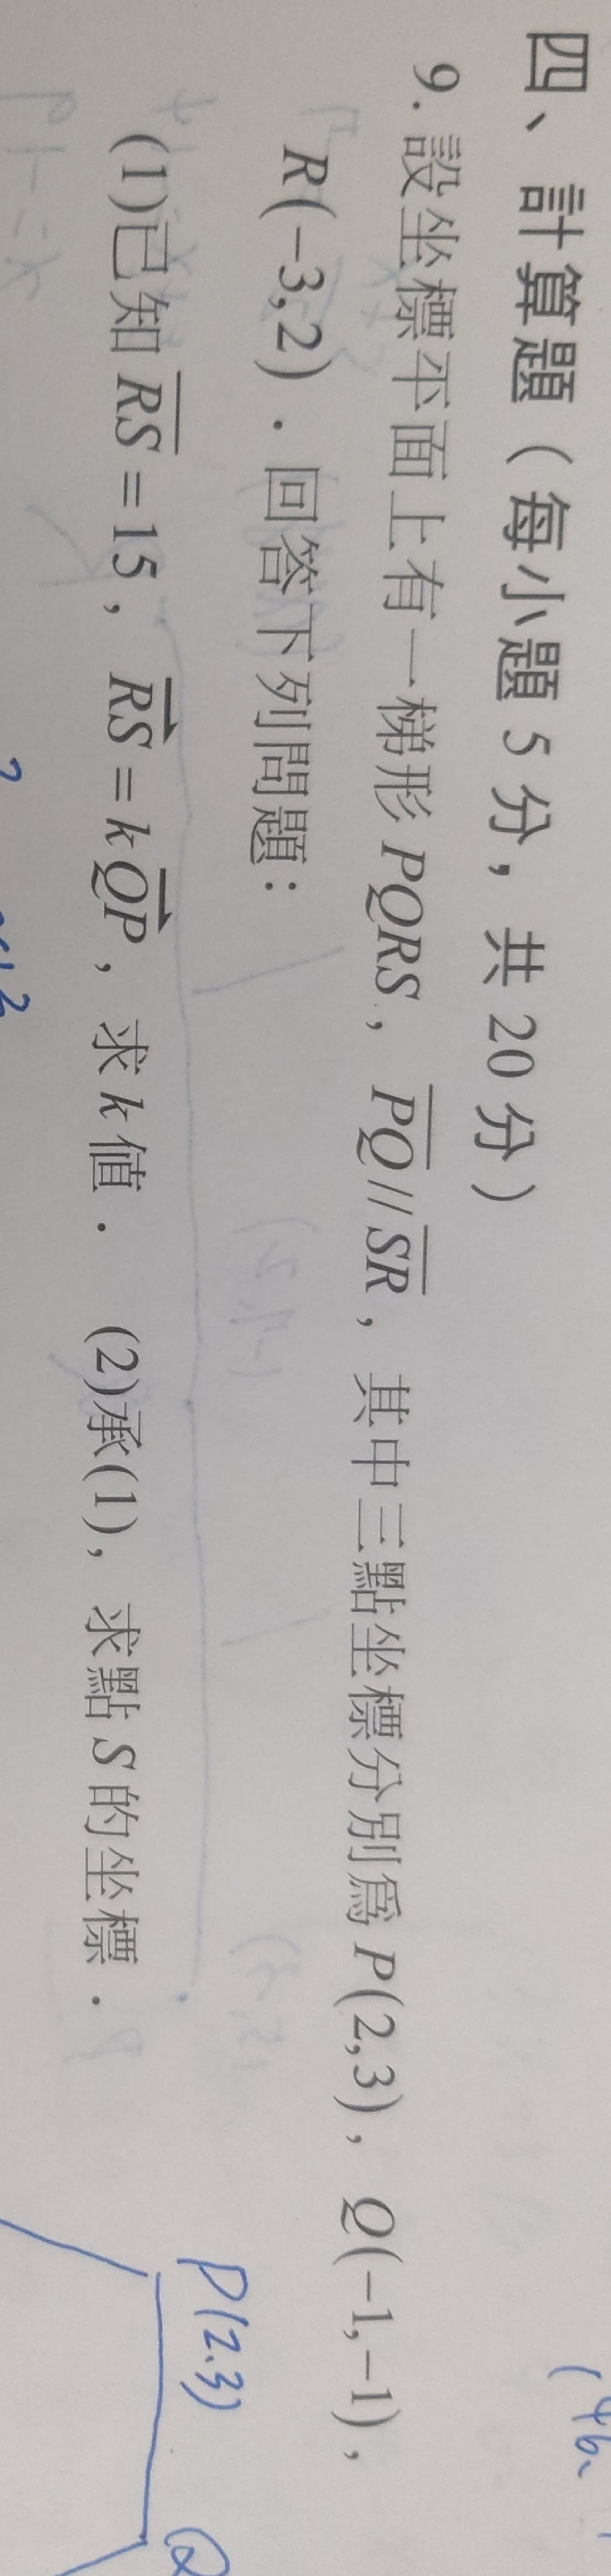 四、計算題（每小題 5 分，共 20 分）
9. 設坐標平面上有一梯形 PQRS，PQ // SR，其中三點坐標分別為 P(2,3)，Q(−1,−1)，
R(−3,2)．回答下列問題：
(1)已知 RS = 15，RS = kQP，求 k 值． (2)承(1)，求點 S 的坐標．
P(2.3)
Q